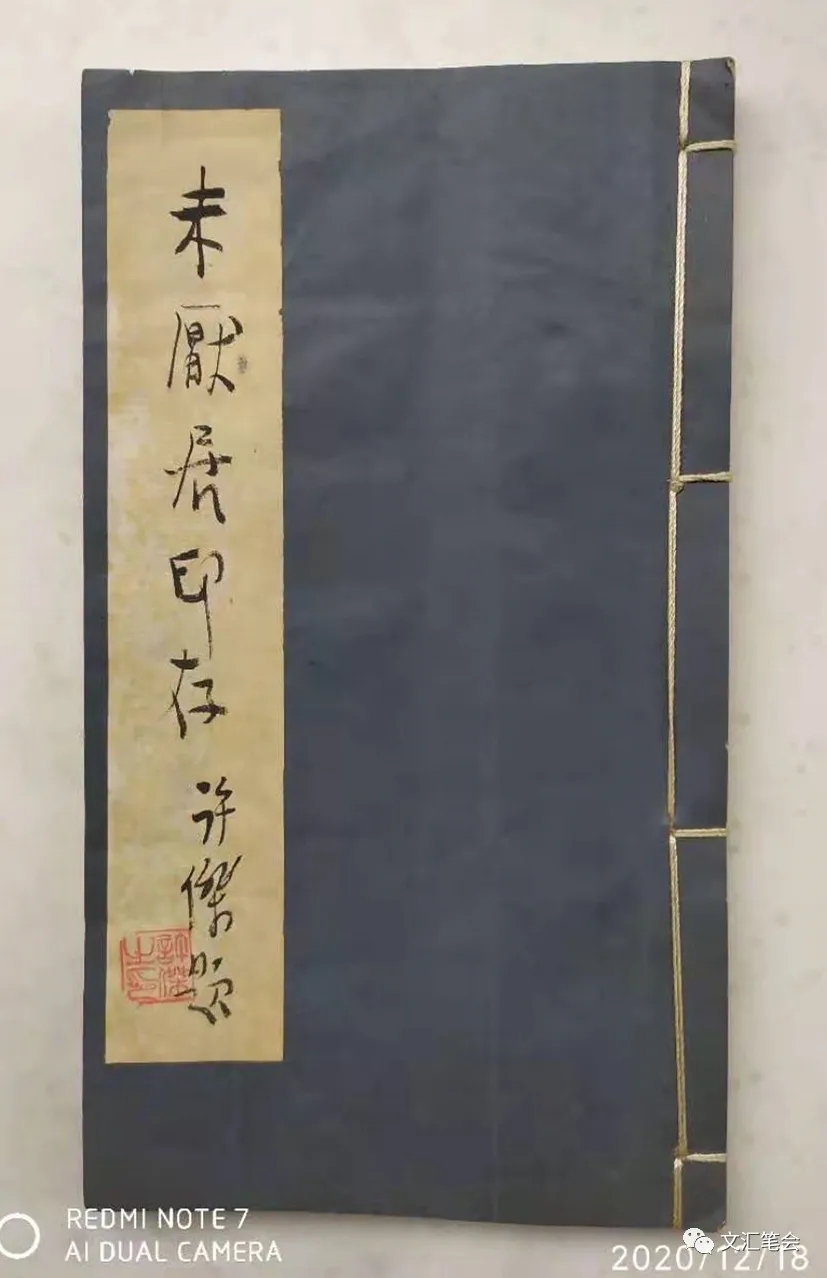 未厭居印存
许傑题
許傑之印
REDMI NOTE 7
AI DUAL CAMERA
文汇笔会
2020/12/18